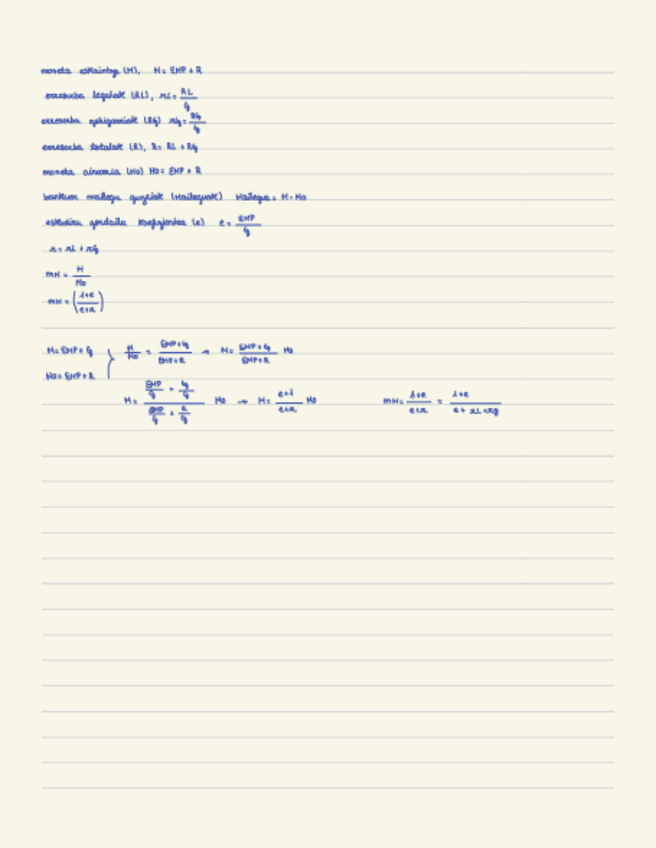 moneta eskaintza (M), M = EHP + R
erreserba legalak (RL), rL = RL/G
erreserba gehigarriak (RG) rg = RG/G
erreserba totalak (R), R = RL + RG
moneta oinarria (Mo) Mo = EHP + R
bankuen mailegu guztiak (Maileguak) Mailegu = M - Mo
eskudiru gordailu koefizientea (e) e = EHP/G
r = rL + rG
mM = M/Mo
mM = (1+e/e+r)
M = EHP + G } M/Mo = EHP+G/EHP+R → M = EHP+G/EHP+R Mo
Mo = EHP + R
M = EHP/G + G/G / EHP/G + R/G Mo → M = e+1/e+r Mo mM = 1+e/e+r = 1+e/e+rL+rg